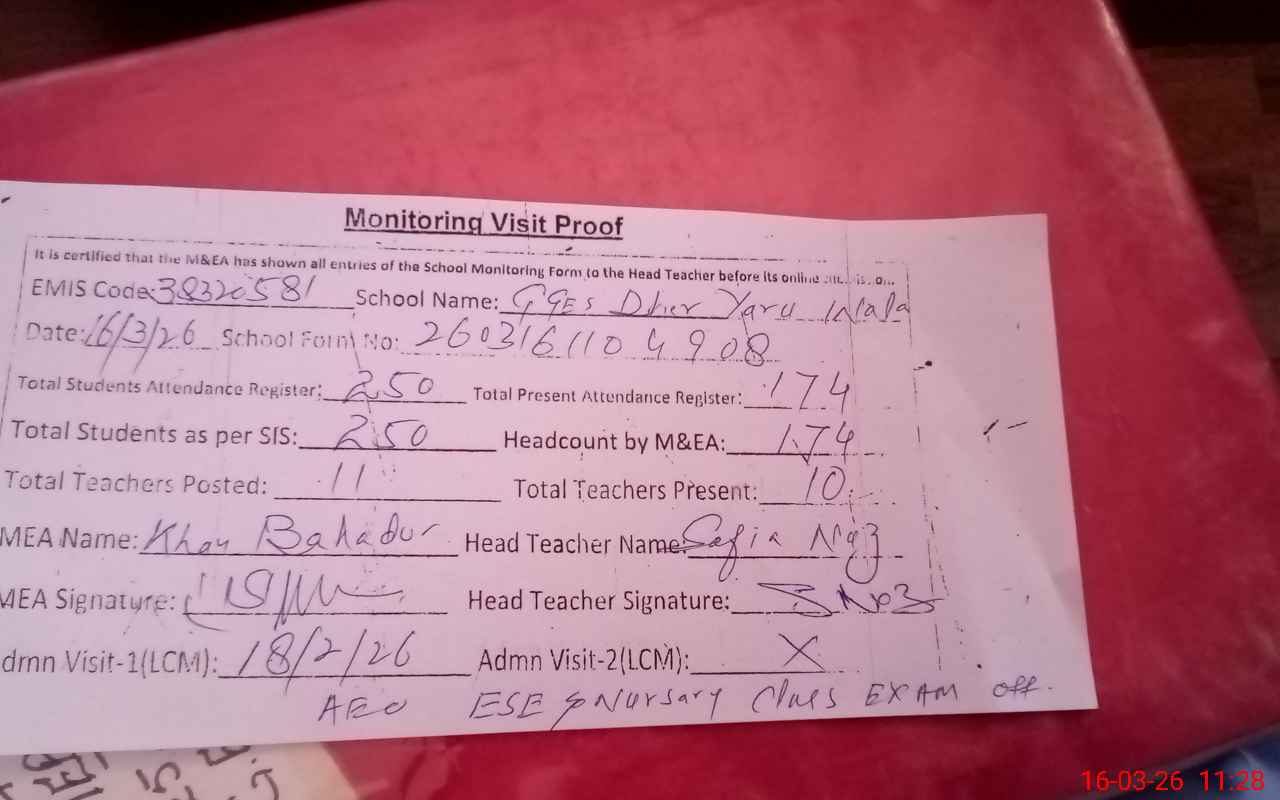 Monitoring Visit Proof
It is certified that the M&EA has shown all entries of the School Monitoring Form to the Head Teacher before its online
EMIS Code: 38320581 School Name: GGES Dher Yaru Wala
Date: 16/3/26 School Form No: 260316110 4908
Total Students Attendance Register: 250 Total Present Attendance Register: 174
Total Students as per SIS: 250 Headcount by M&EA: 174
Total Teachers Posted: 11 Total Teachers Present: 10
MEA Name: Khan Bahadur Head Teacher Name: Safia Niaz
MEA Signature: Head Teacher Signature:
dmn Visit-1(LCM): 18/2/26 Admn Visit-2(LCM): X
AEO ESE Nursary Class EXAM off.
16-03-26 11:28